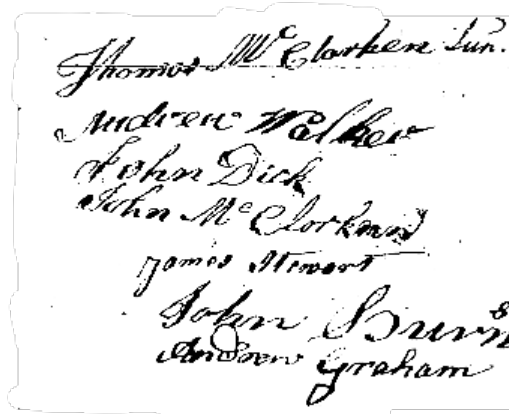 Thomas Mc Clarken Jun.
Andrew Walker
John Dick
John Mc Clorkend
James Stewart
John Burns
Andrew Graham